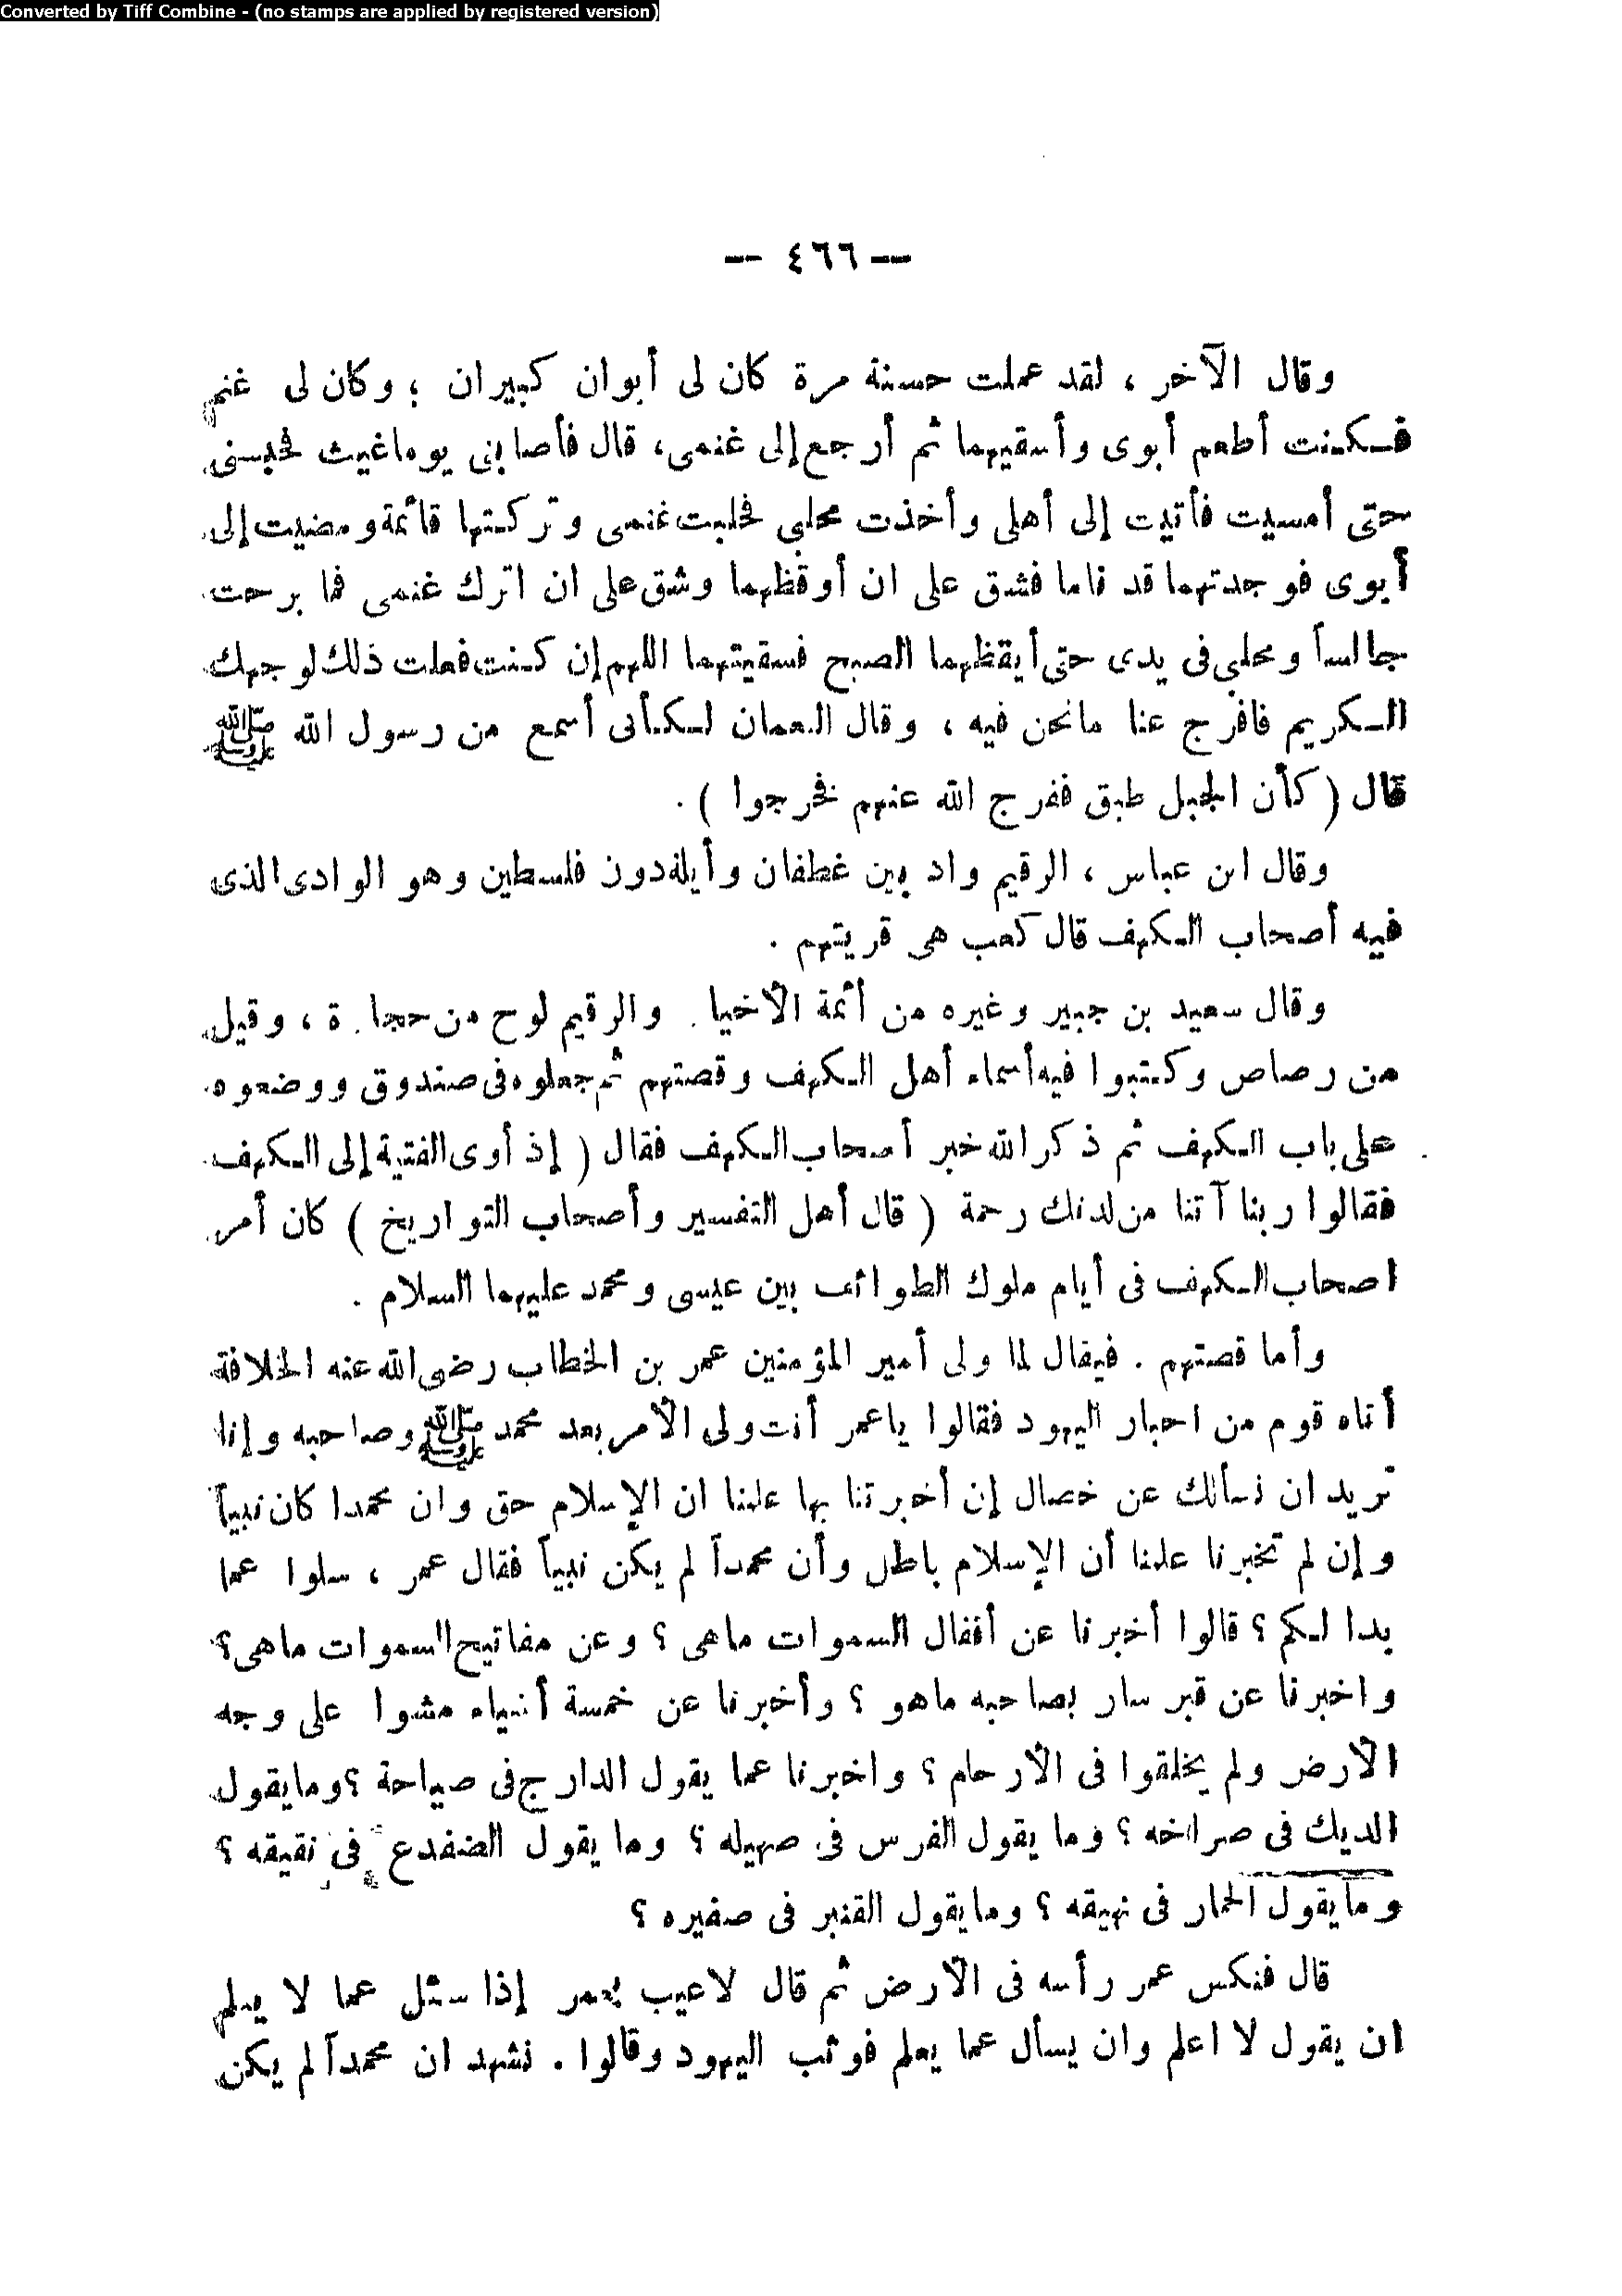 Converted by Tiff Combine - (no stamps are applied by registered version)
— ٤٦٦ —
وقال الآخر ، لقد عملت حسنة مرة كان لى أبوان كبيران ؛ وكان لى غنم
فكنت أطعم أبوى وأسقيهما ثم أرجع إلى غنمى، قال فأصابنى يوما غيث فحبسنى
حتى أمسيت فأتيت إلى أهلى وأخذت محلبى فحلبت غنمى وتركتها قائمة ومضيت إلى
أبوى فوجدتهما قد ناما فشق على ان أوقظهما وشق على ان اترك غنمى فما برحت
جالساً ومحلبى فى يدى حتى أيقظهما الصبح فسقيتهما اللهم إن كنت فعلت ذلك لوجهك
الكريم فافرج عنا مانحن فيه ، وقال النعمان لكأنى أسمع من رسول الله ﷺ
قال ( كأن الجبل طبق ففرج الله عنهم فخرجوا ) .
وقال ابن عباس ، الرقيم واد بين غطفان وأيلة دون فلسطين وهو الوادى الذى
فيه أصحاب الكهف قال كعب هى قريتهم .
وقال سعيد بن جبير وغيره من أئمة الأخيا. والرقيم لوح من حجا. ة ، وقيل
من رصاص وكتبوا فيه أسماء أهل الكهف وقصتهم ثم جعلوه فى صندوق ووضعوه
على باب الكهف ثم ذكر الله خبر أصحاب الكهف فقال ( إذ أوى الفتية إلى الكهف
فقالوا ربنا آتنا من لدنك رحمة ( قال أهل التفسير وأصحاب التواريخ ) كان أمر
اصحاب الكهف فى أيام ملوك الطوائف بين عيسى ومحمد عليهما السلام .
وأما قصتهم . فيقال لما ولى أمير المؤمنين عمر بن الخطاب رضى الله عنه الخلافة
أتاه قوم من احبار اليهود فقالوا ياعمر أنت ولى الأمر بعد محمد ﷺ وصاحبه وإنا
نريد ان نسألك عن خصال إن أخبرتنا بها علمنا ان الإسلام حق وان محمدا كان نبياً
وإن لم تخبرنا علمنا أن الإسلام باطل وأن محمداً لم يكن نبياً فقال عمر ، سلوا عما
بدا لكم ؟ قالوا أخبرنا عن أقفال السموات ماهى ؟ وعن مفاتيح السموات ماهى؟
واخبرنا عن قبر سار بصاحبه ماهو ؟ وأخبرنا عن خمسة أشياء مشوا على وجه
الأرض ولم يخلقوا فى الأرحام ؟ واخبرنا عما يقول الدارج فى صياحة ؟ ومايقول
الديك فى صراخه ؟ وما يقول الفرس فى صهيله ؟ وما يقول الضفدع فى نقيقه ؟
ومايقول الحمار فى نهيقه ؟ ومايقول القنبر فى صفيره ؟
قال فنكس عمر رأسه فى الأرض ثم قال لاعيب بعمر إذا سئل عما لا يعلم
ان يقول لا اعلم وان يسأل عما يعلم فوثب اليهود وقالوا . نشهد ان محمداً لم يكن